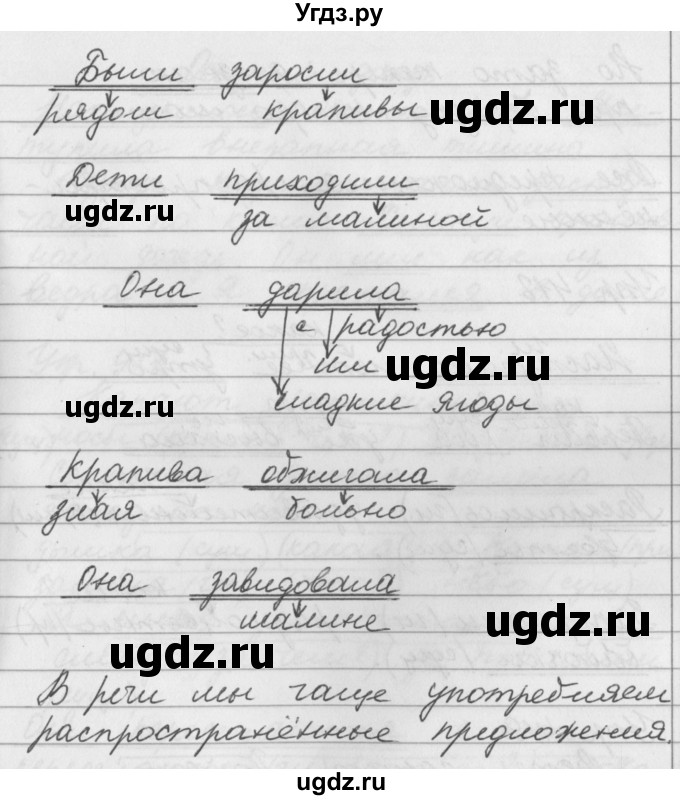 Угдз.ру
Были заросли
рядом крапивы ugdz.ru
Дети приходили
ugdz.ru за малиной
Она дарила
с радостью
им ugdz.ru
ugdz.ru сладкие ягоды
Крапива обжигала
злая больно
Она завидовала
малине ugdz.ru
ugdz.ru
В речи мы чаще употребляем
распространённые предложения.
ugdz.ru